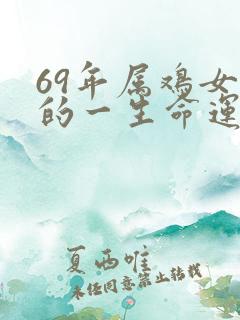 69年属鸡女
的一生命运
夏西唯
未经同意禁止转载